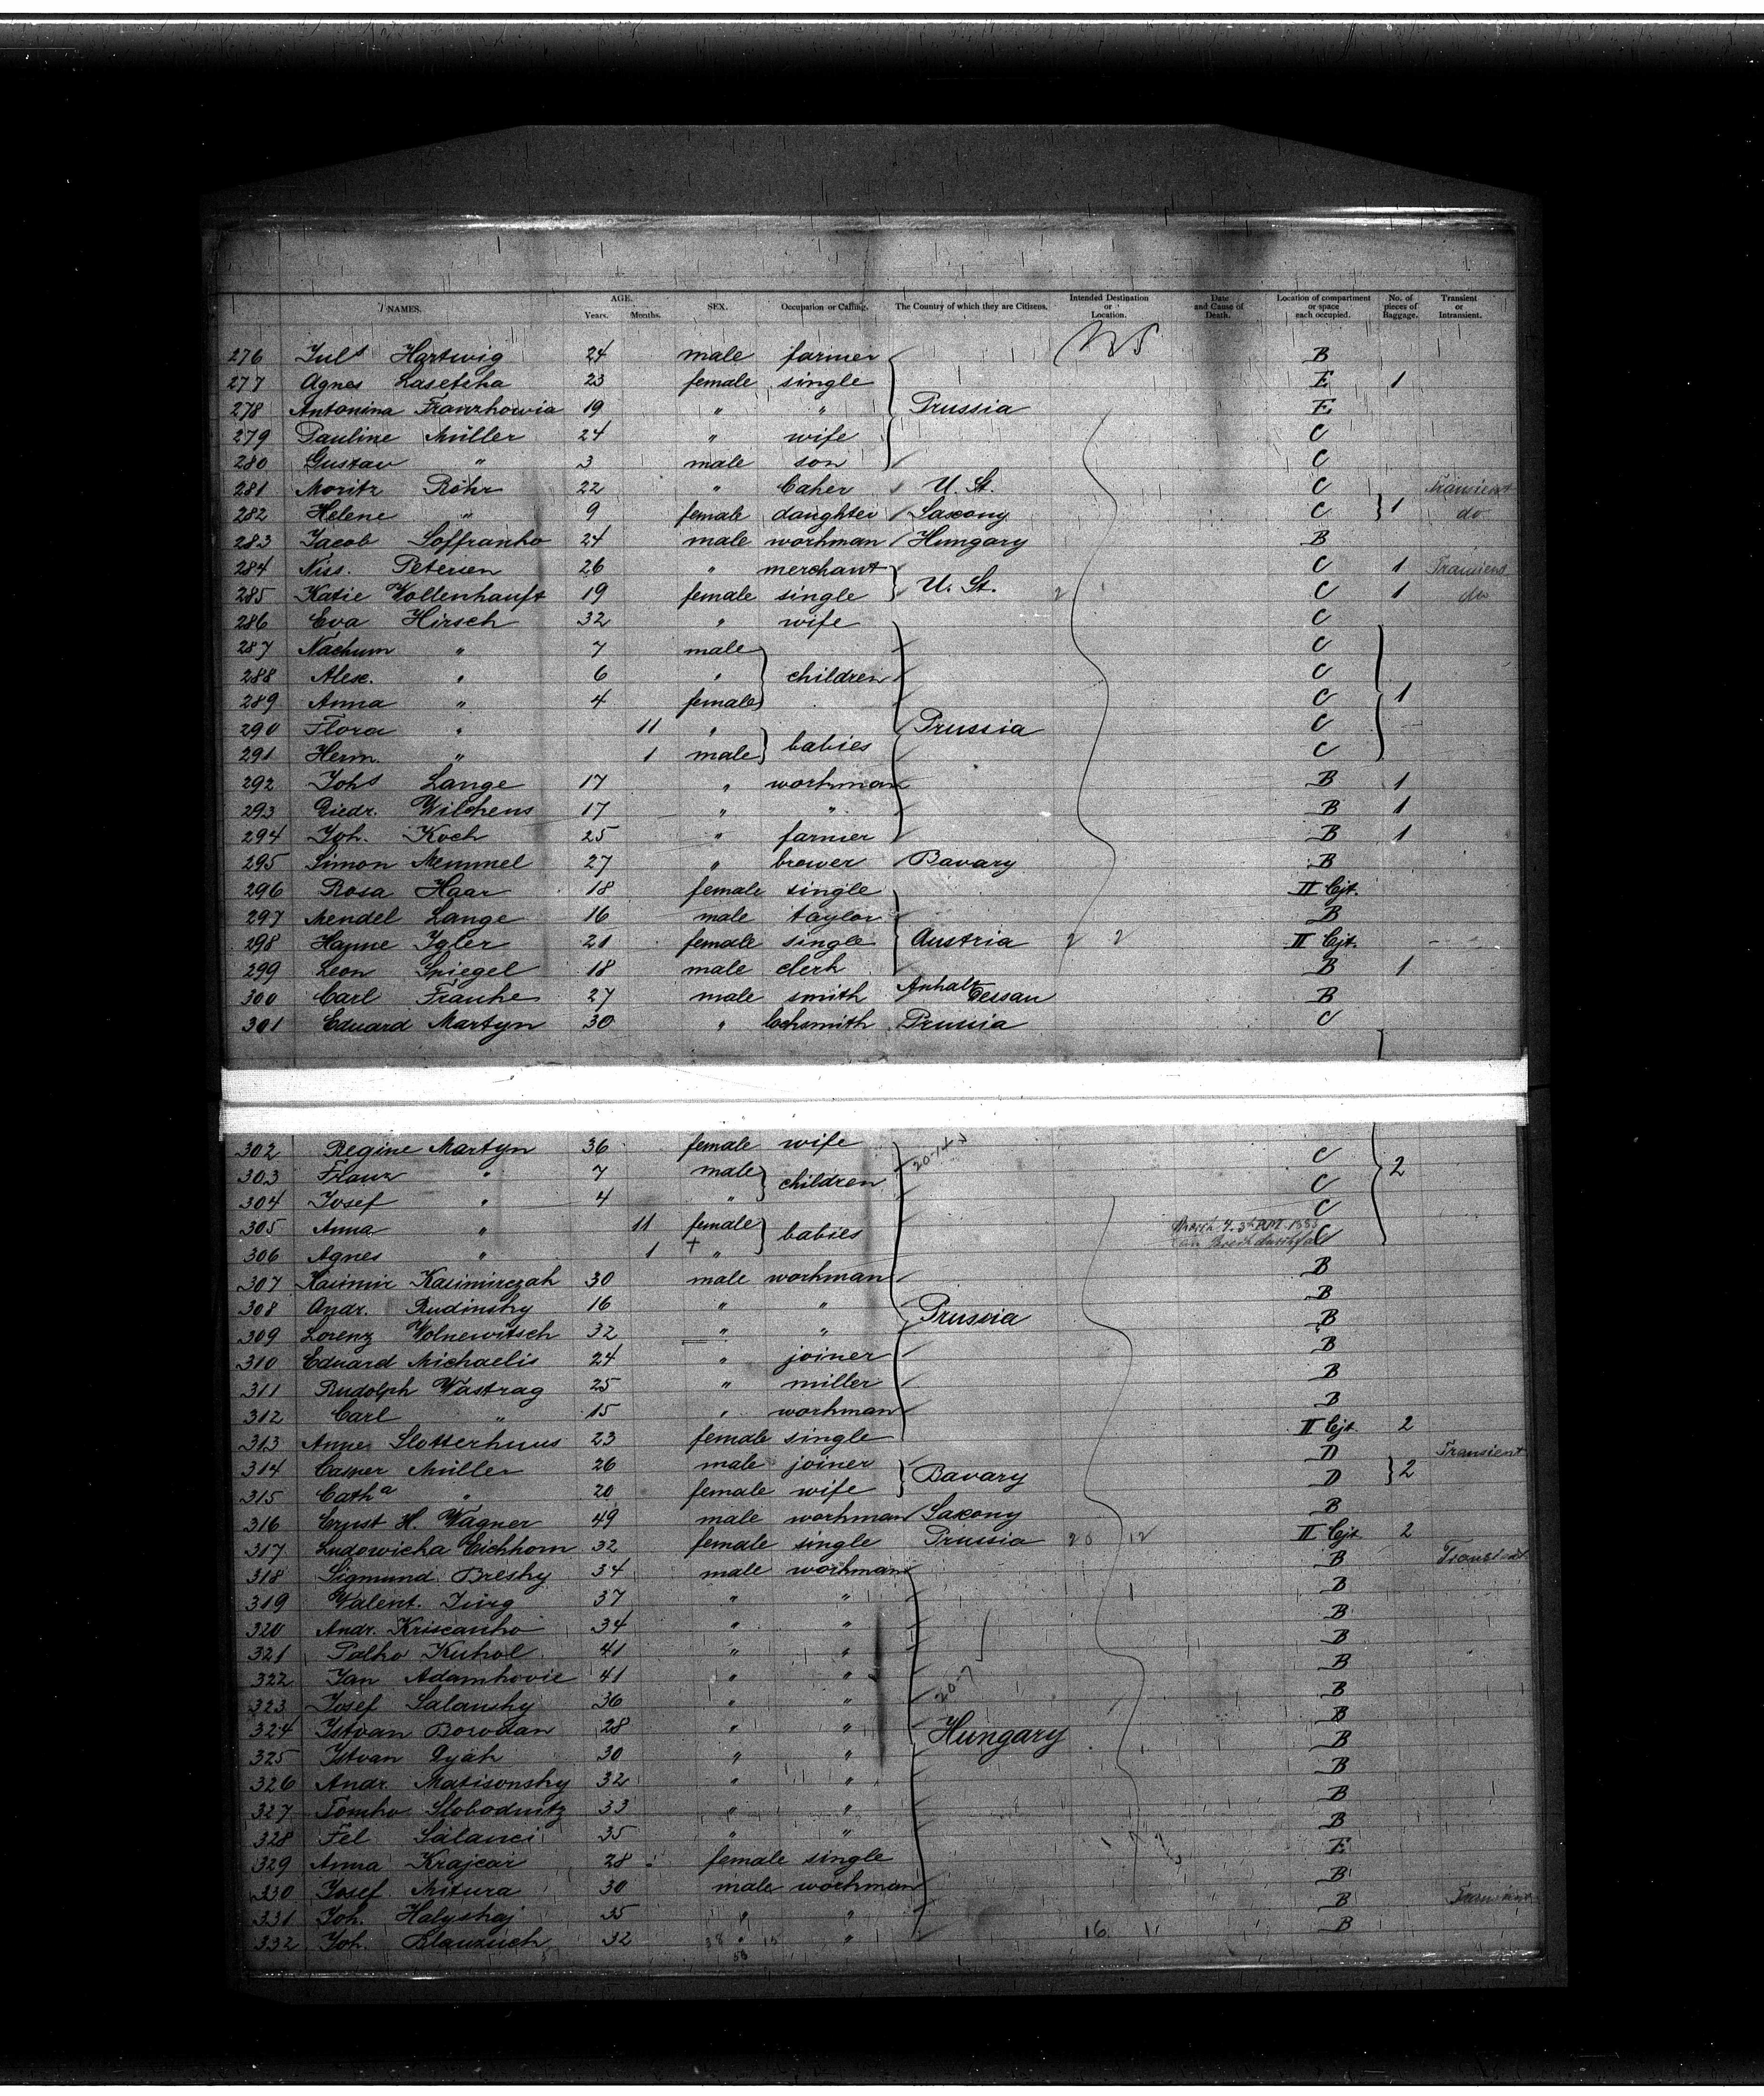 NAMES. AGE. Years. Months. SEX. Occupation or Calling. The Country of which they are Citizens. Intended Destination or Location. Date and Cause of Death. Location of compartment or space each occupied. No. of pieces of Baggage. Transient or Intransient.
276 Juls Hartwig 24 male farmer B
277 Agnes Lasetcha 23 female single E 1
278 Antonina Franzkowia 19 " " Prussia E
279 Pauline Müller 24 " wife C
280 Gustav " 3 male son C
281 Moritz Röhr 22 " baker U. St. C Transient
282 Helene " 9 female daughter Saxony C 1 do
283 Jacob Soffranko 24 male workman Hungary B
284 Niss. Petersen 26 " merchant C 1 Transient
285 Katie Wollenhauft 19 female single U. St. 2 C 1 do
286 Eva Hirsch 32 " wife C
287 Nachum " 7 male C
288 Alex. " 6 " children C
289 Anna " 4 female C 1
290 Flora " 11 " Prussia C
291 Herm. " 1 male babies C
292 Johs Lange 17 " workman B 1
293 Diedr. Wilckens 17 " " B 1
294 Joh. Koch 25 " farmer B 1
295 Simon Memmel 27 " brewer Bavary B
296 Rosa Haar 18 female single II Cjt.
297 Mendel Lange 16 male taylor B
298 Hanne Igler 21 female single Austria 2 2 II Cjt.
299 Leon Spiegel 18 male clerk B 1
300 Carl Franke 27 male smith Anhalt Dessau B
301 Eduard Martyn 30 " locksmith Prussia C
302 Regine Martyn 36 female wife C
303 Franz " 7 male children C 2
304 Josef " 4 " C
305 Anna " 11 female babies C
306 Agnes " 1 + "
307 Kasimir Kasimirczak 30 male workman B
308 Andr. Rudinsky 16 " " Prussia B
309 Lorenz Wolnewitsch 32 " " B
310 Eduard Michaelis 24 " joiner B
311 Rudolph Wastrag 25 " miller B
312 Carl " 15 " workman B
313 Anne Slotterhuus 23 female single II Cjt. 2
314 Casper Müller 26 male joiner Bavary D Transient
315 Catha " 20 female wife D 2
316 Ernst H. Wagner 49 male workman Saxony B
317 Ludowicka Eichhorn 32 female single Prussia 20 12 II Cjt 2
318 Sigmund Bresky 34 male workman B
319 Valent. Jurg 37 " " B
320 Andr. Kriscanko 34 " " B
321 Palko Kuhol 41 " " B
322 Jan Adamkovic 41 " " B
323 Josef Salansky 36 " " B
324 Istvan Borodan 28 " " Hungary B
325 Istvan Gyäk 30 " " B
326 Andr. Matisonsky 32 " " B
327 Tomko Slobodnitz 33 " " B
328 Fel Salanci 35 " " B
329 Anna Krajcar 28 female single E
330 Josef Mitura 30 male workman B
331 Joh. Halyskaj 35 " " B
332 Joh. Blanzuch 32 " " 16 B